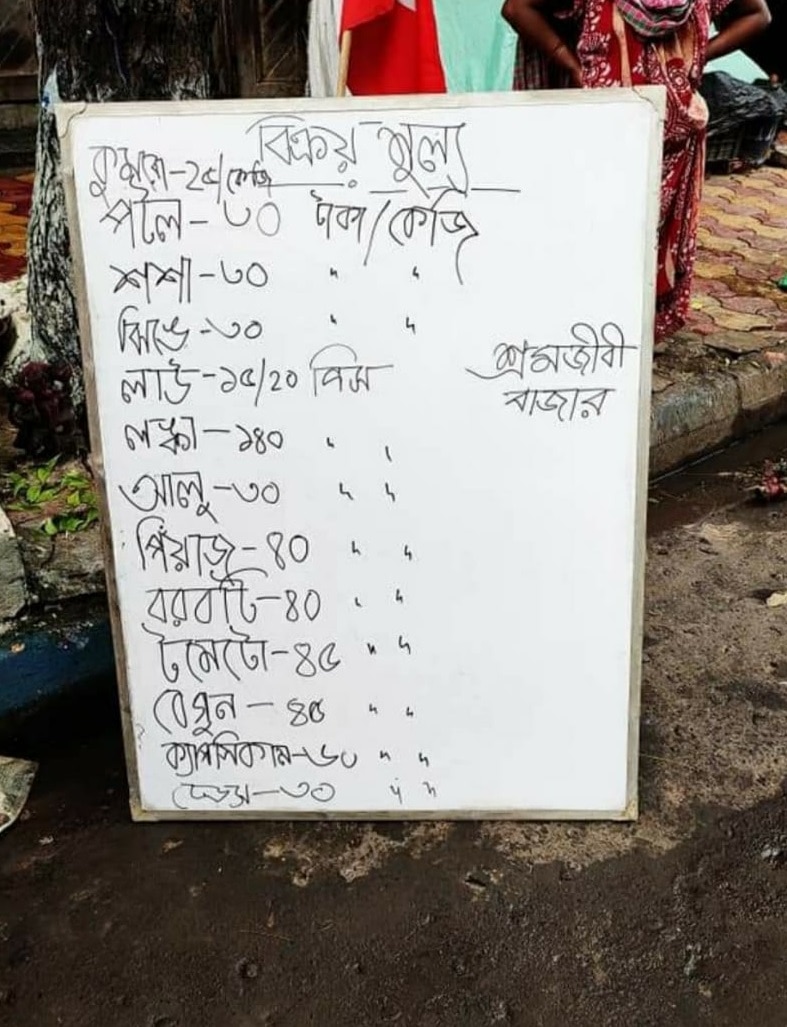 বিক্রয় মূল্য
কুমড়ো-২৫/কেজি
পটল-৩০ টাকা/কেজি
শশা-৩০ " "
ঝিঙে-৩০ " "
লাউ-১৫/২০ পিস
লঙ্কা-১৪০ " "
আলু-৩০ " "
পিঁয়াজ-৪০ " "
বরবটি-৪০ " "
টমেটো-৪৫ " "
বেগুন-৪৫ " "
ক্যাপসিকাম-৬০ " "
ঢেড়স-৩০ " "
শ্রমজীবী
বাজার